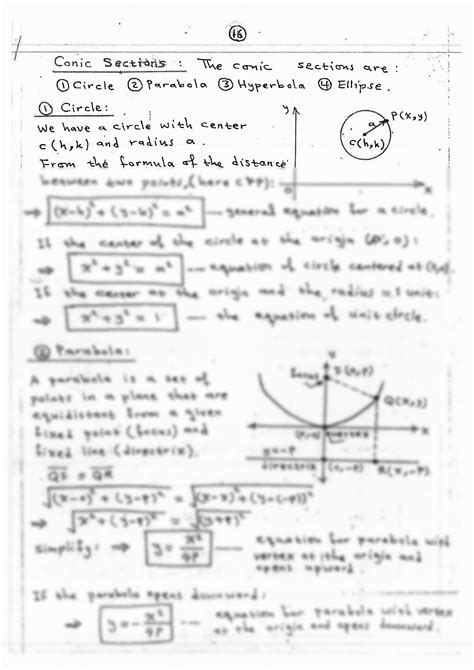 16
Conic Sections : The conic sections are :
① Circle ② Parabola ③ Hyperbola ④ Ellipse.
① Circle:
We have a circle with center
c(h,k) and radius a.
From the formula of the distance
between two points, (here CPP):
y
a
P(x,y)
c(h,k)
0
x
⇒ (x-h)² + (y-k)² = a² --- general equation for a circle.
If the center of the circle at the origin (0,0):
⇒ x² + y² = a² --- equation of circle centered at (0,0).
If the center at the origin and the radius = 1 unit:
⇒ x² + y² = 1 --- the equation of unit circle.
② Parabola:
A parabola is a set of
points in a plane that are
equidistant from a given
fixed point (focus) and
fixed line (directrix).
y
focus
F(0,P)
Q(x,y)
(0,0) vertex
x
y=-P
directrix
(0,-P)
R(x,-P)
QF = QR
√(x-0)² + (y-P)² = √(x-x)² + (y-(-P))²
⇒ √x² + (y-P)² = √(y+P)²
Simplify: ⇒ y = x²/4P --- equation for parabola with
vertex at the origin and
opens upward.
If the parabola opens downward:
⇒ y = - x²/4P --- equation for parabola with vertex
at the origin and opens downward.